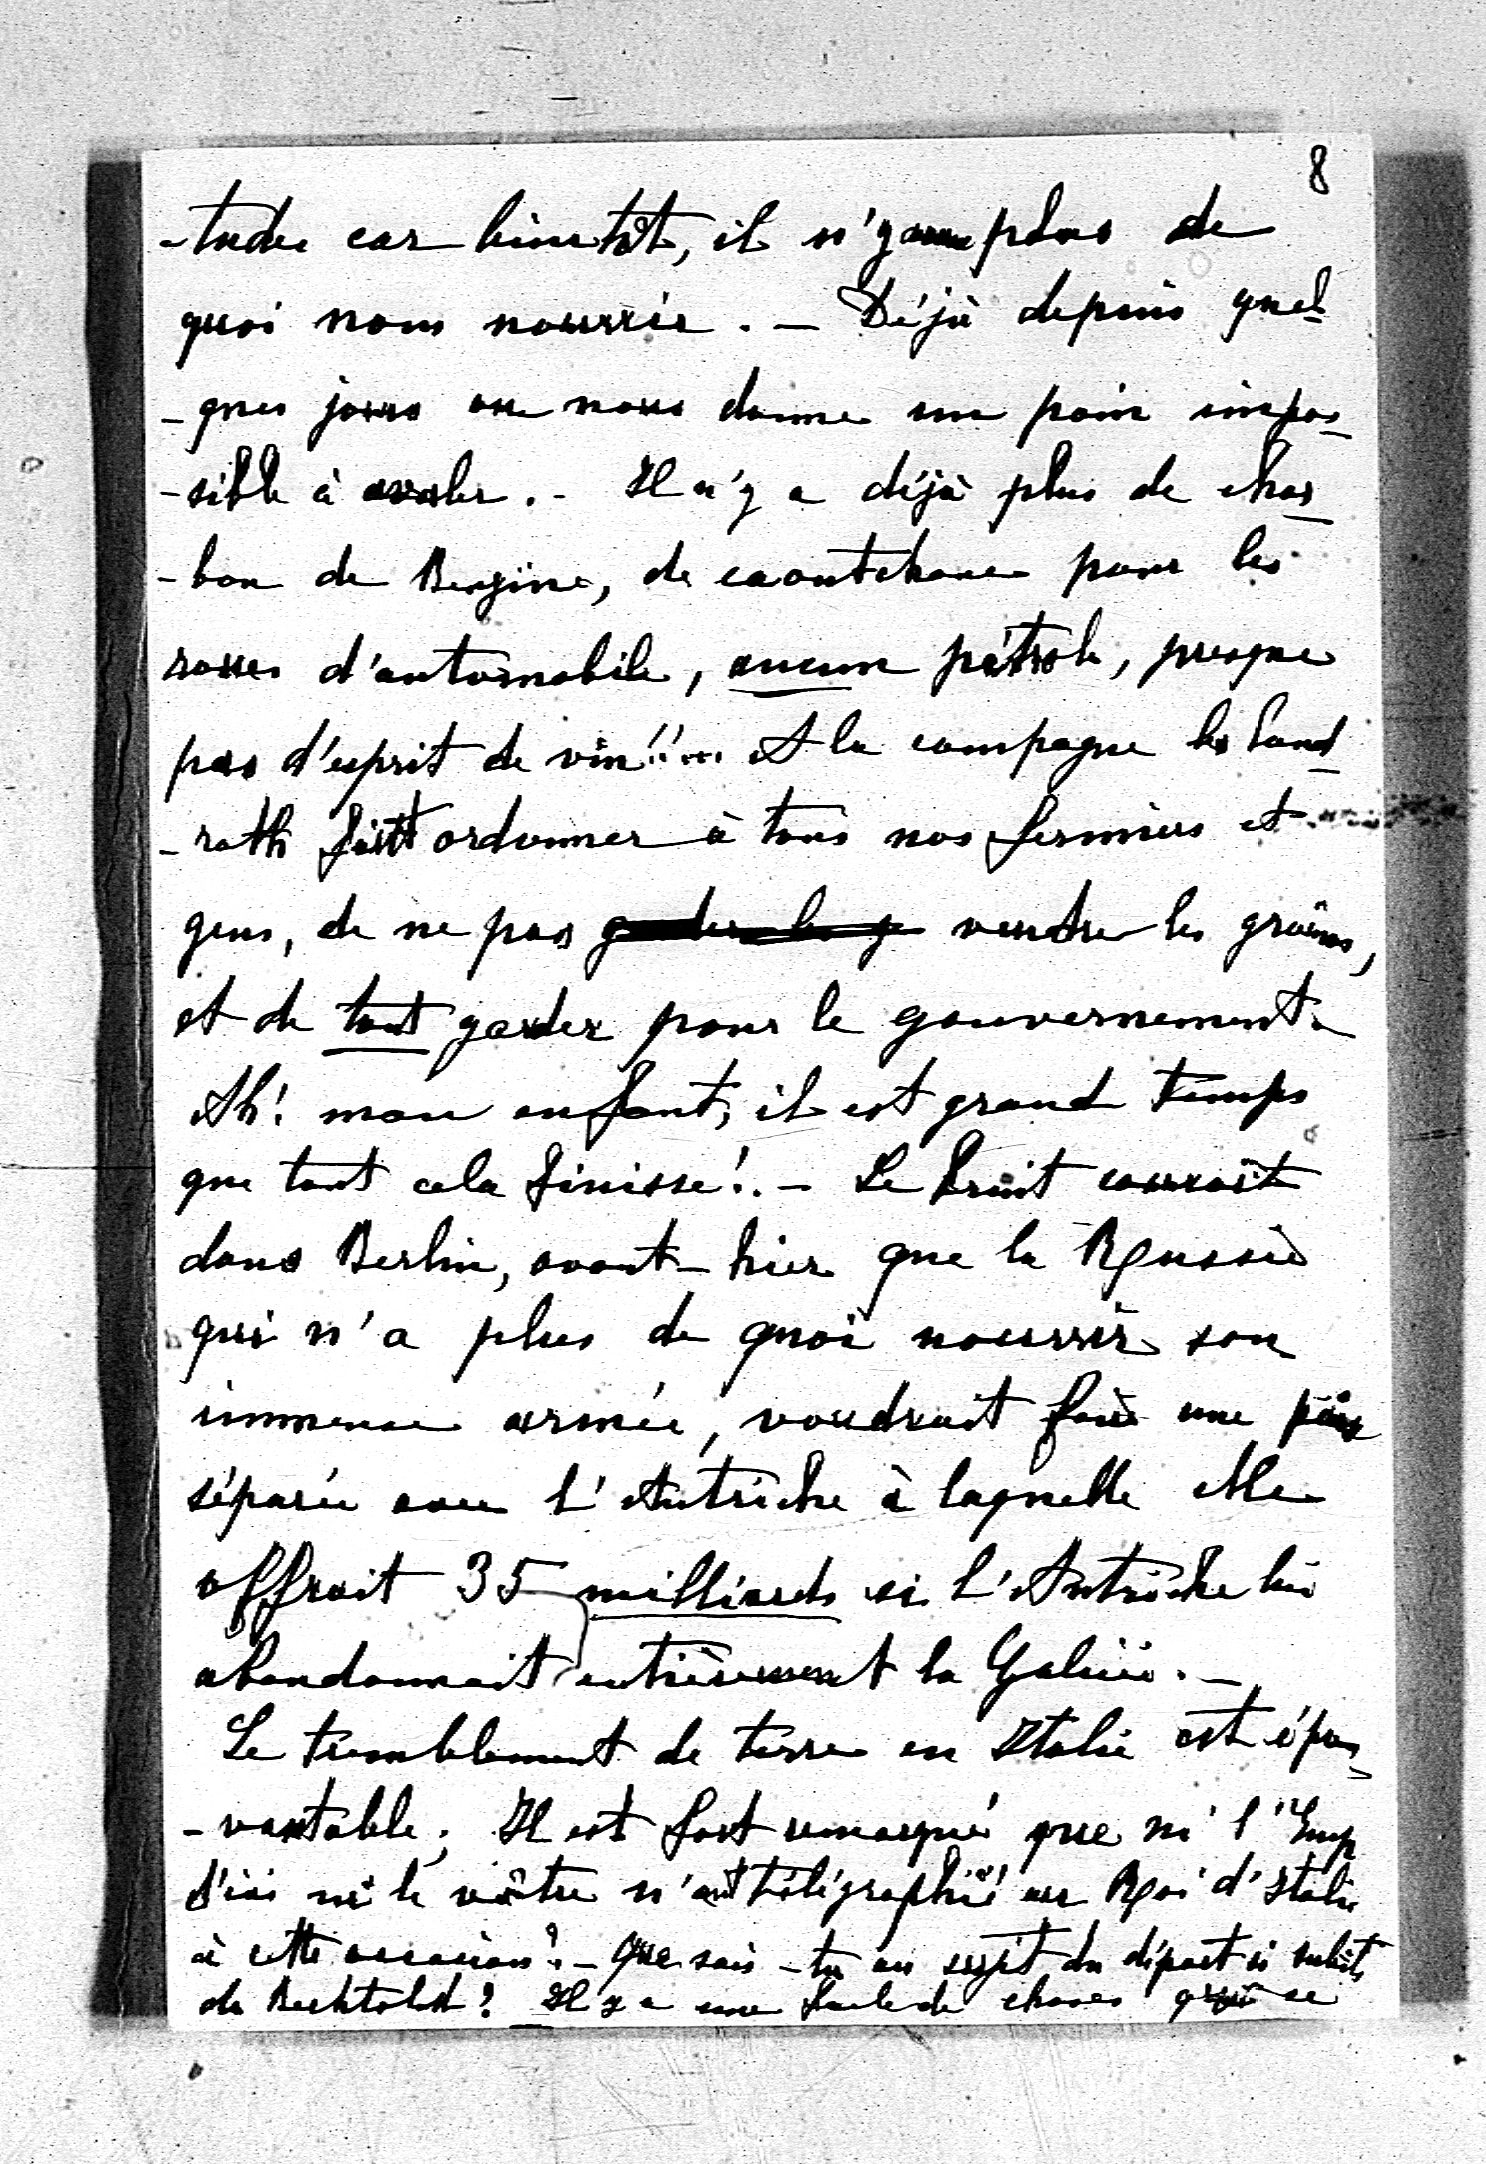 8
-tudes car bientôt, il n'y aura plus de
quoi nous nourrir. — Déjà depuis quel-
-ques jours on nous donne un pain impos-
-sible à avaler. - Il n'y a déjà plus de char-
-bon de Benzine, de caoutchouc pour les
roues d'automobile, aucun pétrole, presque
pas d'esprit de vin!!... A la campagne les Land-
-rath font ordonner à tous nos fermiers et
gens, de ne pas garder les g vendre les graines,
et de tout garder pour le gouvernement.
Ah! mon enfant, il est grand temps
que tout cela finisse!. — Le bruit courait
dans Berlin, avant-hier que la Russie
qui n'a plus de quoi nourrir son
immense armée, voudrait faire une paix
séparée avec l'Autriche à laquelle elle
offrait 35 milliards si l'Autriche lui
abandonnait entièrement la Galicie. —
Le tremblement de terre en Italie est épou-
-vantable; Il est fort remarqué que ni l'Emp
d'ici ni le vôtre n'ont télégraphié au Roi d'Italie
à cette occasion? — Que sais-tu au sujet du départ si subit
de Berchtold? Il y a une foule de choses qui se